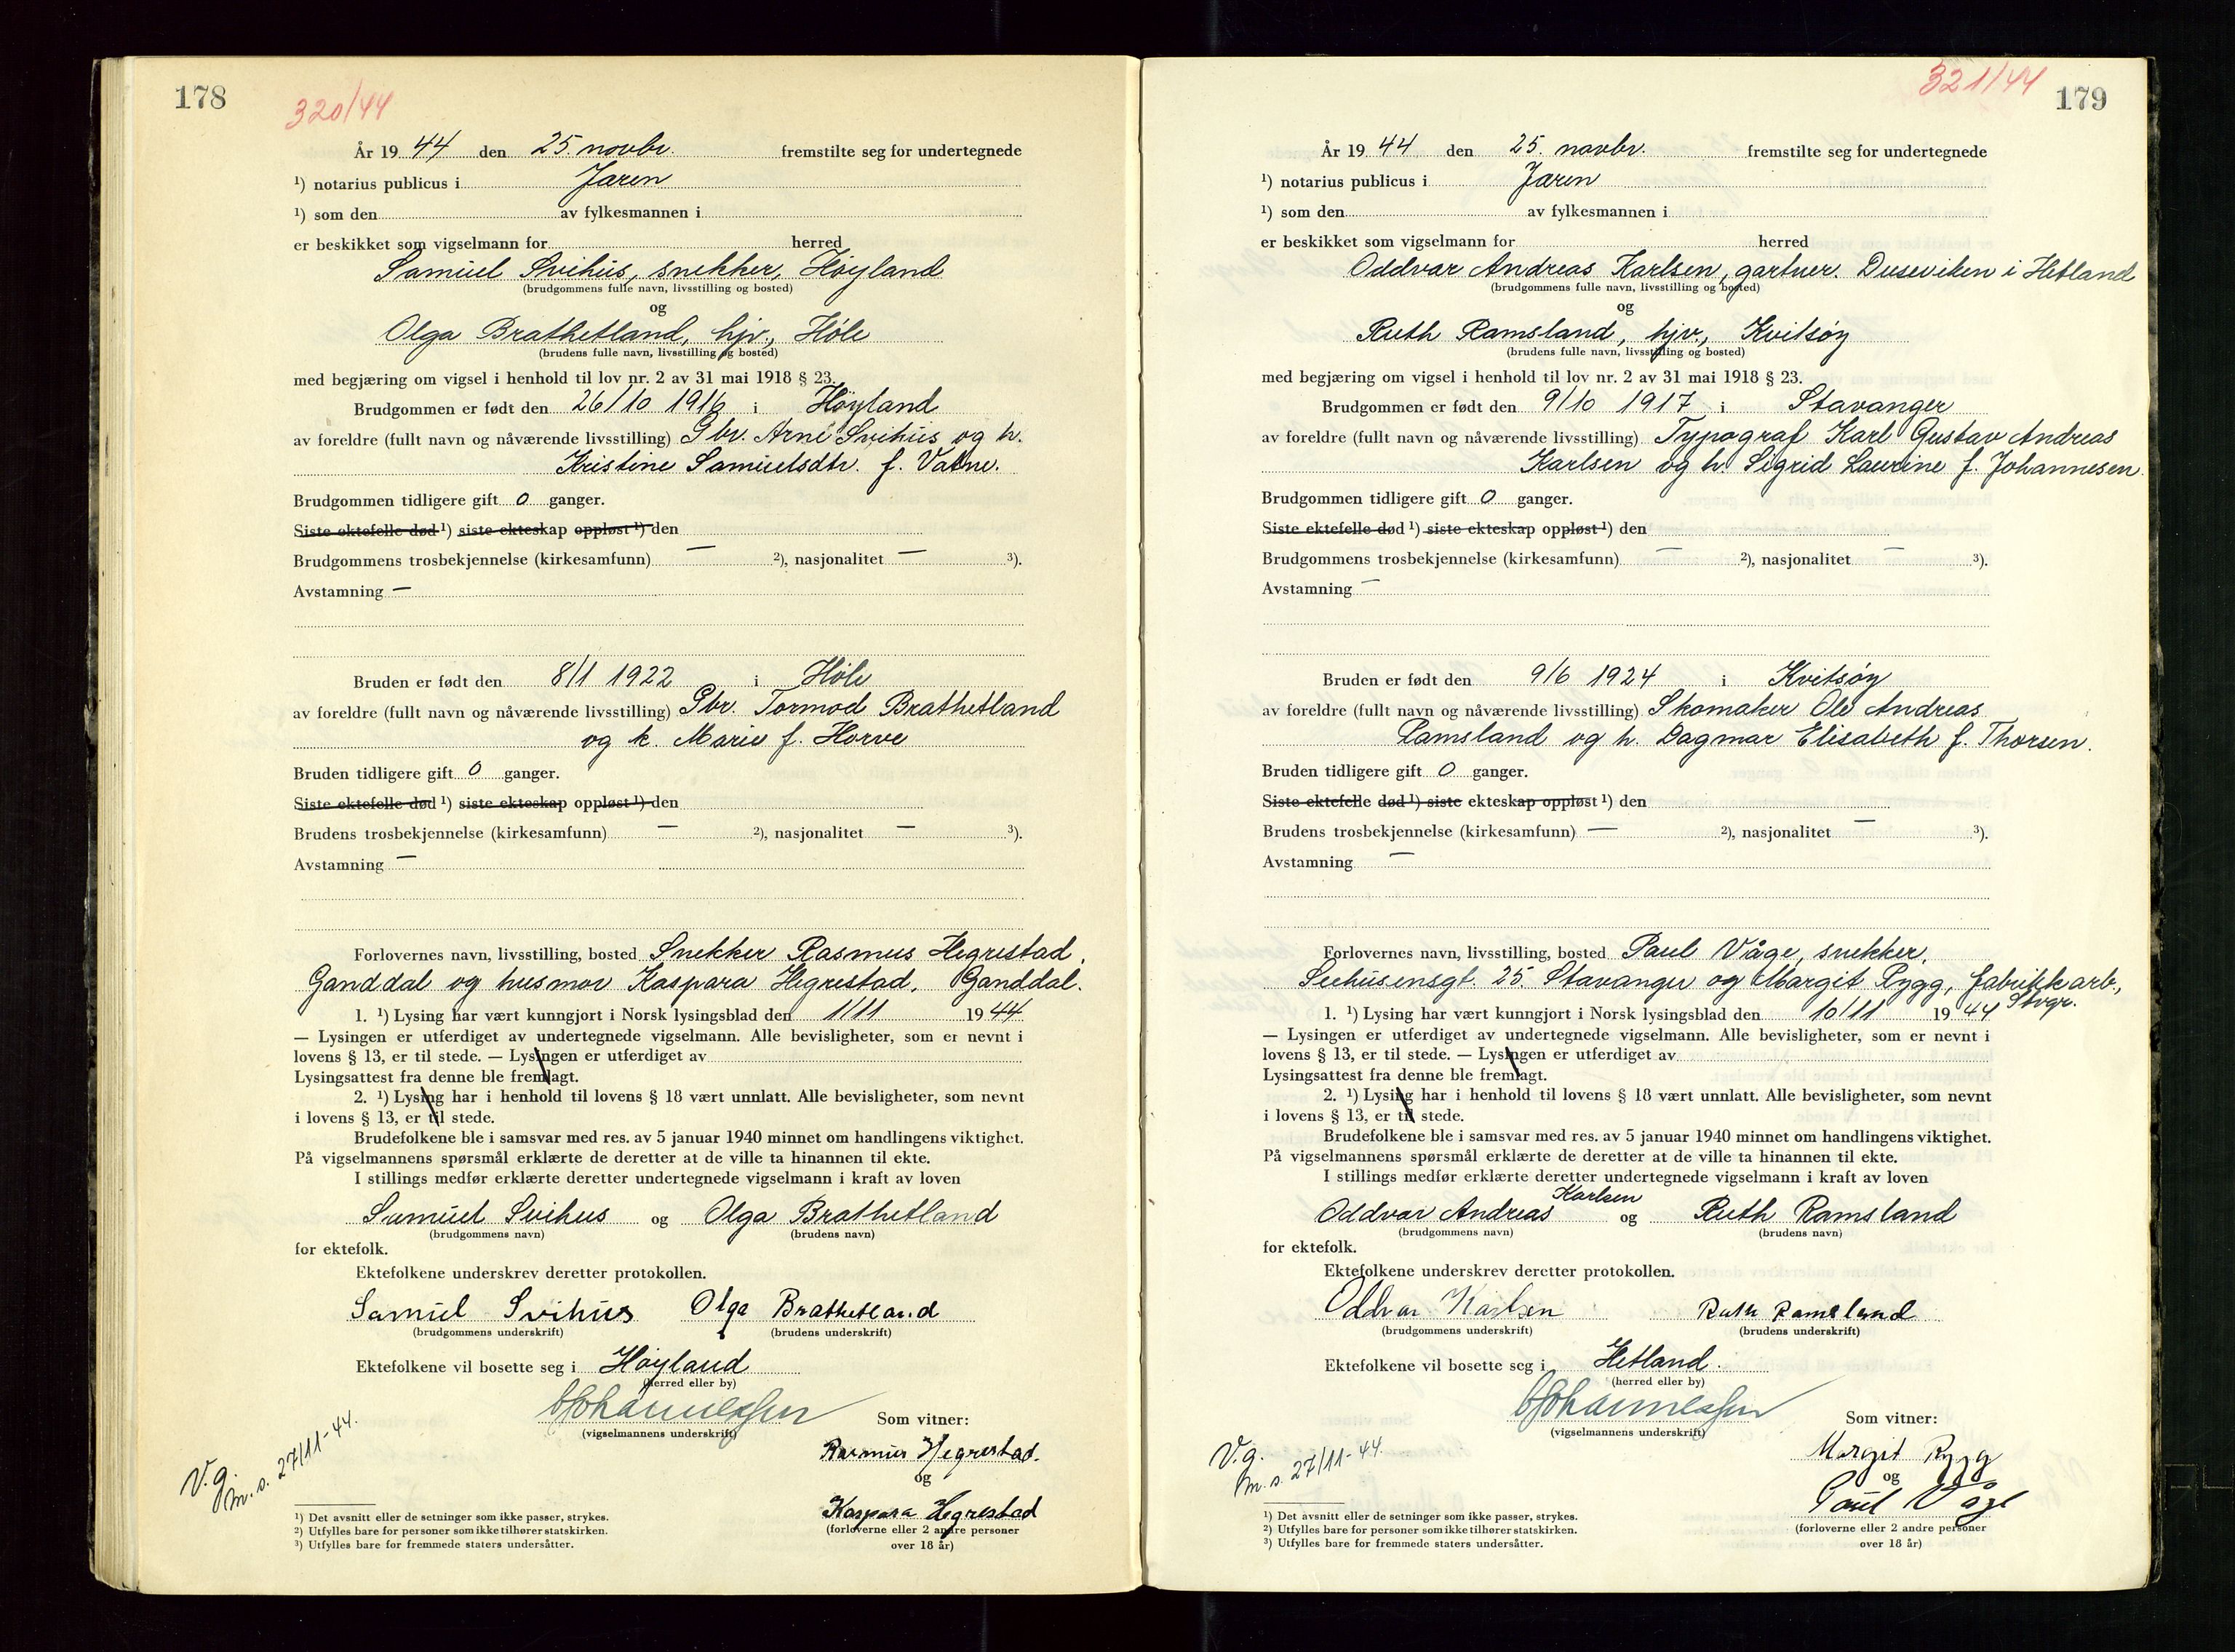 178
320/44
År 19 44 den 25. novbr. fremstilte seg for undertegnede
¹) notarius publicus i Jæren
¹) som den av fylkesmannen i
er beskikket som vigselmann for herred
Samuel Svihus, snekker, Høyland
(brudgommens fulle navn, livsstilling og bosted)
og
Olga Brathetland, hjv., Høle
(brudens fulle navn, livsstilling og bosted)
med begjæring om vigsel i henhold til lov nr. 2 av 31 mai 1918 § 23.
Brudgommen er født den 26/10 1916 i Høyland
av foreldre (fullt navn og nåværende livsstilling) Gbr. Arne Svihus og h.
Kristine Samuelsdtr. f. Vatne.
Brudgommen tidligere gift 0 ganger.
Siste ektefelle død ¹) siste ekteskap oppløst ¹) den
Brudgommens trosbekjennelse (kirkesamfunn) — ²), nasjonalitet — ³).
Avstamning —
Bruden er født den 8/1 1922 i Høle
av foreldre (fullt navn og nåværende livsstilling) Gbr. Tormod Brathetland
og k. Marie f. Horve
Bruden tidligere gift 0 ganger.
Siste ektefelle død ¹) siste ekteskap oppløst ¹) den
Brudens trosbekjennelse (kirkesamfunn) — ²), nasjonalitet — ³).
Avstamning —
Forlovernes navn, livsstilling, bosted Snekker Rasmus Hegrestad,
Ganddal og husmor Kaspara Hegrestad, Ganddal.
1. ¹) Lysing har vært kunngjort i Norsk lysingsblad den 1/11 19 44
— Lysingen er utferdiget av undertegnede vigselmann. Alle bevisligheter, som er nevnt i
lovens § 13, er til stede. — Lysingen er utferdiget av
Lysingsattest fra denne ble fremlagt.
2. ¹) Lysing har i henhold til lovens § 18 vært unnlatt. Alle bevisligheter, som nevnt
i lovens § 13, er til stede.
Brudefolkene ble i samsvar med res. av 5 januar 1940 minnet om handlingens viktighet.
På vigselmannens spørsmål erklærte de deretter at de ville ta hinannen til ekte.
I stillings medfør erklærte deretter undertegnede vigselmann i kraft av loven
Samuel Svihus og Olga Brathetland
(brudgommens navn) (brudens navn)
for ektefolk.
Ektefolkene underskrev deretter protokollen.
Samuel Svihus Olga Brathetland
(brudgommens underskrift) (brudens underskrift)
Ektefolkene vil bosette seg i Høyland
(herred eller by)
Johannessen
(vigselmannens underskrift)
Som vitner:
Rasmus Hegrestad.
og
Kaspara Hegrestad
(forloverne eller 2 andre personer
over 18 år)
V.g.
m. s. 27/11-44.
¹) Det avsnitt eller de setninger som ikke passer, strykes.
²) Utfylles bare for personer som ikke tilhører statskirken.
³) Utfylles bare for fremmede staters undersåtter.
321/44
179
År 19 44 den 25. novbr. fremstilte seg for undertegnede
¹) notarius publicus i Jæren
¹) som den av fylkesmannen i
er beskikket som vigselmann for herred
Oddvar Andreas Karlsen, gartner.Duseviken i Hetland
(brudgommens fulle navn, livsstilling og bosted)
og
Ruth Ramsland, hjv., Kvitsøy
(brudens fulle navn, livsstilling og bosted)
med begjæring om vigsel i henhold til lov nr. 2 av 31 mai 1918 § 23.
Brudgommen er født den 9/10 1917 i Stavanger
av foreldre (fullt navn og nåværende livsstilling) Typograf Karl Gustav Andreas
Karlsen og h. Sigrid Laurine f. Johannesen
Brudgommen tidligere gift 0 ganger.
Siste ektefelle død ¹) siste ekteskap oppløst ¹) den
Brudgommens trosbekjennelse (kirkesamfunn) — ²), nasjonalitet — ³).
Avstamning —
Bruden er født den 9/6 1924 i Kvitsøy
av foreldre (fullt navn og nåværende livsstilling) Skomaker Ole Andreas
Ramsland og h. Dagmar Elisabeth f. Thorsen.
Bruden tidligere gift 0 ganger.
Siste ektefelle død ¹) siste ekteskap oppløst ¹) den
Brudens trosbekjennelse (kirkesamfunn) — ²), nasjonalitet — ³).
Avstamning —
Forlovernes navn, livsstilling, bosted Paul Våge, snekker,
Seehusensgt. 25. Stavanger og Margit Rygg, fabrikkarb.,
Stvgr.
1. ¹) Lysing har vært kunngjort i Norsk lysingsblad den 10/11 19 44
— Lysingen er utferdiget av undertegnede vigselmann. Alle bevisligheter, som er nevnt i
lovens § 13, er til stede. — Lysingen er utferdiget av
Lysingsattest fra denne ble fremlagt.
2. ¹) Lysing har i henhold til lovens § 18 vært unnlatt. Alle bevisligheter, som nevnt
i lovens § 13, er til stede.
Brudefolkene ble i samsvar med res. av 5 januar 1940 minnet om handlingens viktighet.
På vigselmannens spørsmål erklærte de deretter at de ville ta hinannen til ekte.
I stillings medfør erklærte deretter undertegnede vigselmann i kraft av loven
Oddvar Andreas Karlsen og Ruth Ramsland
(brudgommens navn) (brudens navn)
for ektefolk.
Ektefolkene underskrev deretter protokollen.
Oddvar Karlsen Ruth Ramsland
(brudgommens underskrift) (brudens underskrift)
Ektefolkene vil bosette seg i Hetland.
(herred eller by)
Johannessen
(vigselmannens underskrift)
Som vitner:
Margit Rygg
og
Paul Våge
(forloverne eller 2 andre personer
over 18 år)
V.g.
m. s. 27/11-44.
¹) Det avsnitt eller de setninger som ikke passer, strykes.
²) Utfylles bare for personer som ikke tilhører statskirken.
³) Utfylles bare for fremmede staters undersåtter.